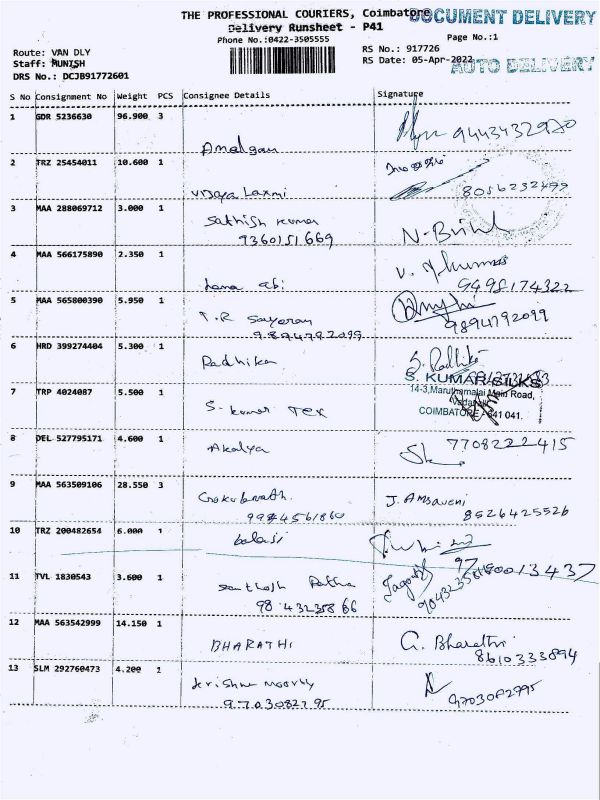 THE PROFESSIONAL COURIERS, Coimbatore
DOCUMENT DELIVERY
Delivery Runsheet - P41
Phone No.:0422-3505555
Page No.:1
Route: VAN DLY
RS No.: 917726
Staff: MUNISH
RS Date: 05-Apr-2022
AUTO DELIVERY
DRS No.: DCJB91772601
S No Consignment No Weight PCS Consignee Details Signature
1 GDR 5236630 96.900 3
Amalgam 9443432980
2 TRZ 25454011 10.600 1
Vijaya Laxmi 8056232499
3 MAA 288069712 3.000 1
Sathish Kumar
9360151669
4 MAA 566175890 2.350 1
V. Jkumar
9498174322
5 MAA 565800390 5.950 1
T.R
9894792099 9894792099
6 HRD 399274404 5.300 1
Radhika S. Radhika
S. KUMAR SILKS
14-3, Maruthamalai Main Road,
Vadavalli
COIMBATORE - 641 041.
7 TRP 4024087 5.500 1
S. Kumar Tex
8 DEL 527795171 4.600 1
Akalya 7708222415
9 MAA 563509106 28.550 3
J. Amsaveni
9944561860 8526425526
10 TRZ 200482654 6.000 1
balaji
11 TVL 1830543 3.600 1
Santhosh
12 MAA 563542999 14.150 1
BHARATHI G. Bharathi
8610333894
13 SLM 292760473 4.200 1
Krishna moorthy
9703082795 9703082795